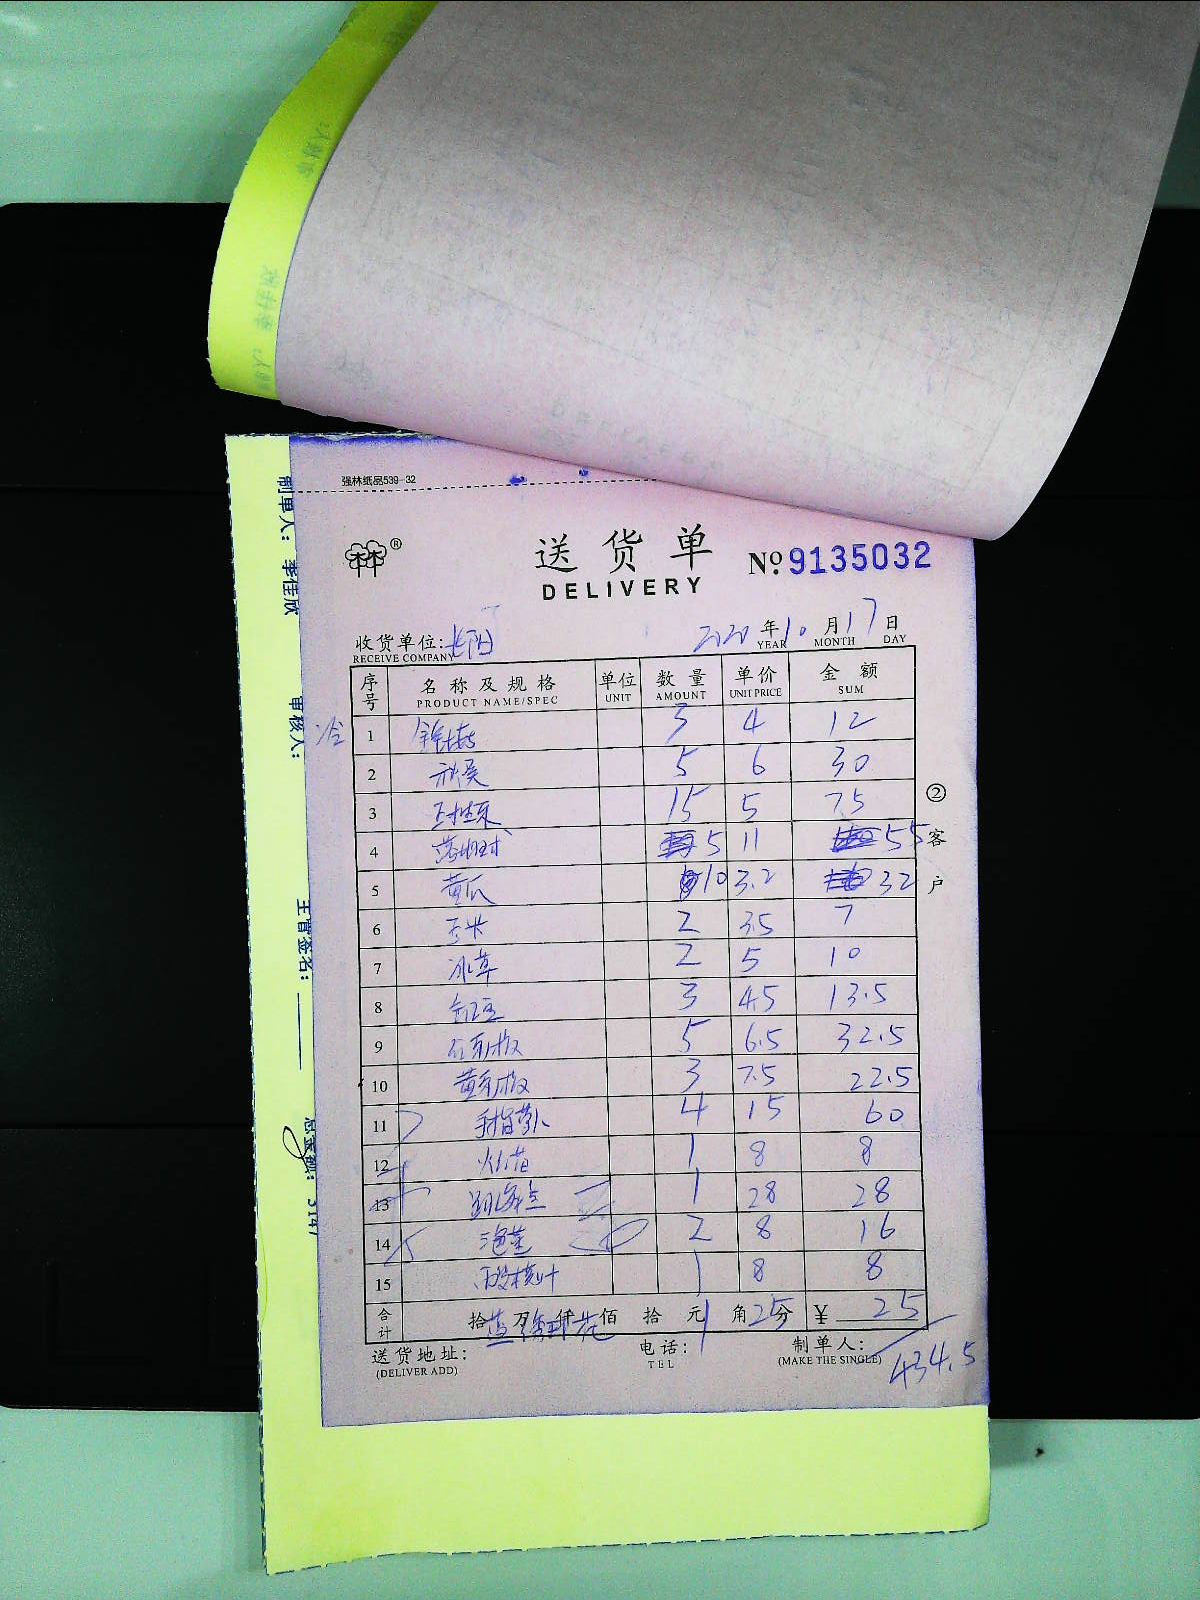 强林纸品539-32
送货单
DELIVERY
№ 9135032
收货单位:
RECEIVE COMPANY
2020 年 10 月 17 日
YEAR MONTH DAY
序号 名称及规格 单位 数量 单价 金额
PRODUCT NAME/SPEC UNIT AMOUNT UNIT PRICE SUM
冷
1 3 4 12
2 秋葵 5 6 30
3 15 5 75
4 5 11 55
5 黄瓜 10 3.2 32
6 玉米 2 3.5 7
7 冰草 2 5 10
8 豇豆 3 4.5 13.5
9 5 6.5 32.5
10 3 7.5 22.5
11 手指萝卜 4 15 60
12 1 8 8
13 1 28 28
14 泡菜 2 8 16
15 1 8 8
合计 拾 万 仟 佰 拾 元 1 角 25 分 ¥ 25
送货地址:
(DELIVER ADD)
电话:
TEL
制单人:
(MAKE THE SINGLE)
434.5
②客户
制单人: 李佳欣
审核人:
主管签名:
总金额: 3147